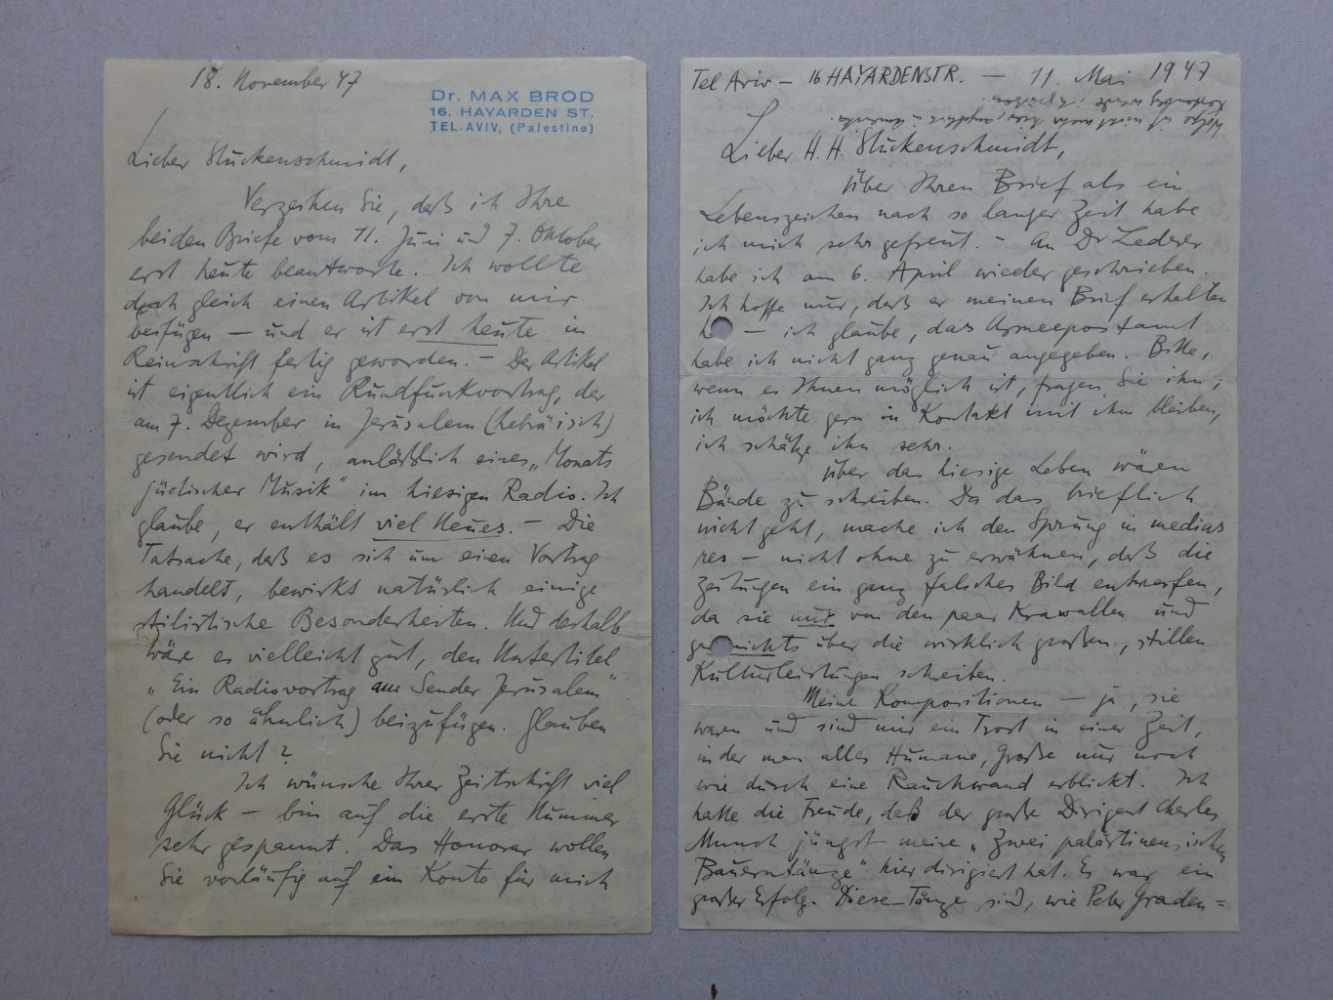 18. November 47
Dr. MAX BROD
16, HAYARDEN ST.
TEL-AVIV, (Palestine)
Lieber Stuckenschmidt,
Verzeihen Sie, daß ich Ihre
beiden Briefe vom 11. Juni und 7. Oktober
erst heute beantworte. Ich wollte
doch gleich einen Artikel von mir
beifügen – und er ist erst heute in
Reinschrift fertig geworden. – Der Artikel
ist eigentlich ein Rundfunkvortrag, der
am 7. Dezember in Jerusalem (hebräisch)
gesendet wird, anläßlich eines „Monats
jüdischer Musik“ im hiesigen Radio. Ich
glaube, er enthält viel Neues. – Die
Tatsache, daß es sich um einen Vortrag
handelt, bewirkt natürlich einige
stilistische Besonderheiten. Und deshalb
wäre es vielleicht gut, den Untertitel
„Ein Radiovortrag aus Sender Jerusalem“
(oder so ähnlich) beizufügen. Glauben
Sie nicht?
Ich wünsche Ihrer Zeitschrift viel
Glück – bin auf die erste Nummer
sehr gespannt. Das Honorar wollen
Sie vorläufig auf ein Konto für mich
Tel Aviv – 16 HAYARDENSTR. – 11. Mai 1947
Lieber H. H. Stuckenschmidt,
Über Ihren Brief als ein
Lebenszeichen nach so langer Zeit habe
ich mich sehr gefreut. – An Dr Lederer
habe ich am 6. April wieder geschrieben.
Ich hoffe nur, daß er meinen Brief erhalten
h – ich glaube, das Armeepostamt
habe ich nicht ganz genau angegeben. Bitte,
wenn es Ihnen möglich ist, fragen Sie ihn;
ich möchte gern in Kontakt mit ihm bleiben,
ich schätze ihn sehr.
Über das hiesige Leben wären
Bände zu schreiben. Da das brieflich
nicht geht, mache ich den Sprung in medias
res – nicht ohne zu erwähnen, daß die
Zeitungen ein ganz falsches Bild entwerfen,
da sie nur von den paar Krawallen und
gar nichts über die wirklich großen, stillen
Kulturleistungen schreiben.
Meine Kompositionen – ja, sie
waren und sind mir ein Trost in einer Zeit,
in der man alles Humane, Große nur noch
wie durch eine Rauchwand erblickt. Ich
hatte die Freude, daß der große Dirigent Charles
Munch jüngst meine „Zwei palästinensischen
Bauerntänze“ hier dirigiert hat. Es war ein
großer Erfolg. Diese Tänze sind, wie Peter Graden=